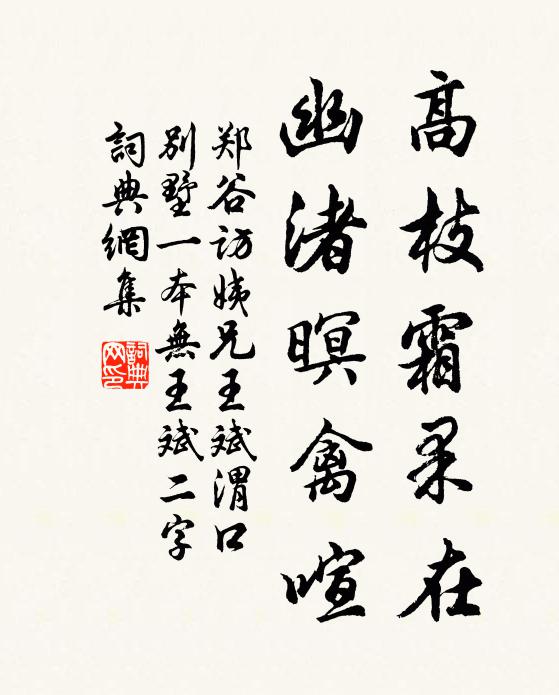 高枝霜果在
幽渚暝禽喧
郑谷访姨兄王斌渭口
别墅一本無王斌二字
詞典網集
詞典
网印